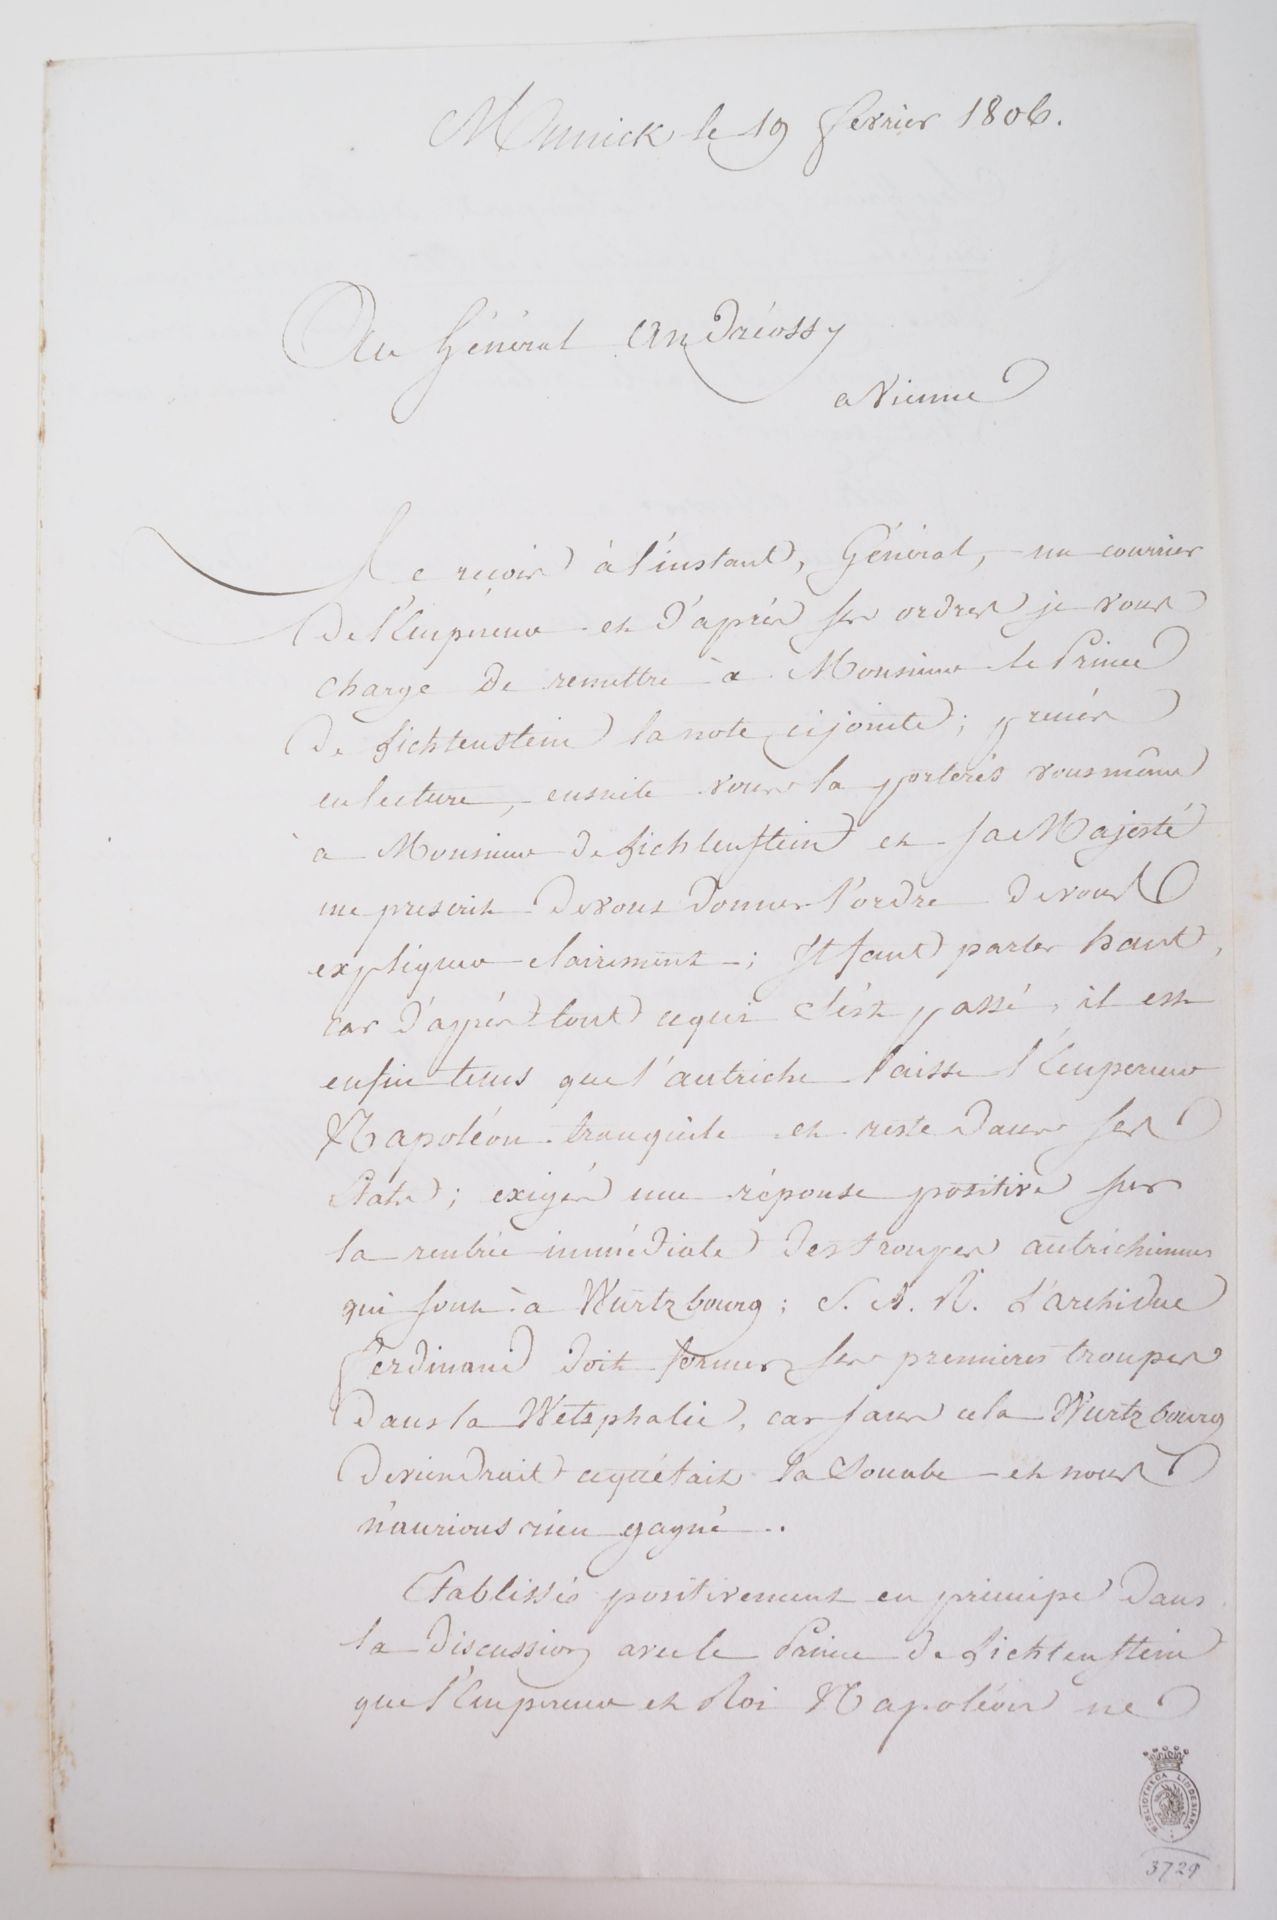 Munick le 19 fevrier 1806.
Au Général Andréossy
a Vienne
Je reçois à l'instant, Général, un courrier
de l'Empereur et d'après ses ordres je vous
charge de remettre à Monsieur le Prince
de Lichtenstein la note cijointe; prenés
en lecture, ensuite vous la porterés vous même
à Monsieur de Lichtenstein et sa Majesté
me prescrit de vous donner l'ordre de vous
expliquer clairement; Il faut parler haut,
car d'après tout cequi s'est passé, il est
enfin tems que l'autriche laisse l'Empereur
Napoléon tranquile et reste dans ses
Etats; exigés une réponse positive sur
la rentrée immédiate des troupes autrichiennes
qui sont à Wurtzbourg; S. A. R. L'archiduc
Ferdinand doit former ses premieres troupes
dans la Wetsphalie, car sans cela Wurtzbourg
deviendrait cequ'était la Souabe et nous
n'aurions rien gagné.
Etablissés positivement en principe dans
la discussion avec le Prince de Lichtenstein
que l'Empereur et Roi Napoléon ne
BIBLIOTHECA LINDESIANA
3729